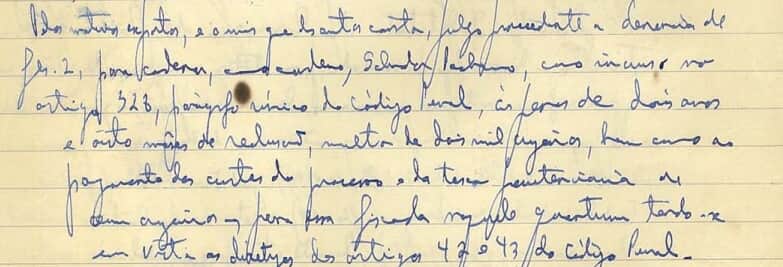 Pelos motivos expostos, e o mais que dos autos consta, julgo procedente a denuncia de
fls. 2, para condenar, como condeno, Salvador Pacheco, como incurso no
artigo 328, parágrafo único do Código Penal, às penas de dois anos
e oito mêses de reclusão, multa de dois mil cruzeiros, bem como ao
pagamento das custas do processo e da taxa penitenciaria de
cem cruzeiros — pena essa fixada naquele quantum tendo-se
em vista as diretrizes dos artigos 42 e 43 do Código Penal.